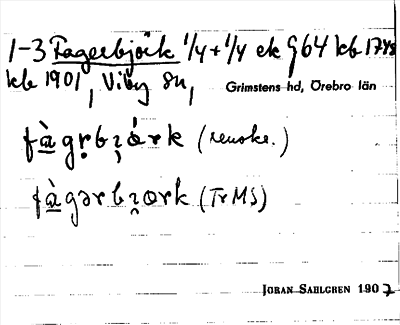 1-3 Fagerbjörk 1/4+1/4 ek § 64 kb 1748
kb 1901, Viby sn, Grimstens hd, Örebro län
fàgr̥bɿórk (renskr.)
fàgərbɿork (Tr MS)
JÖRAN SAHLGREN 1907